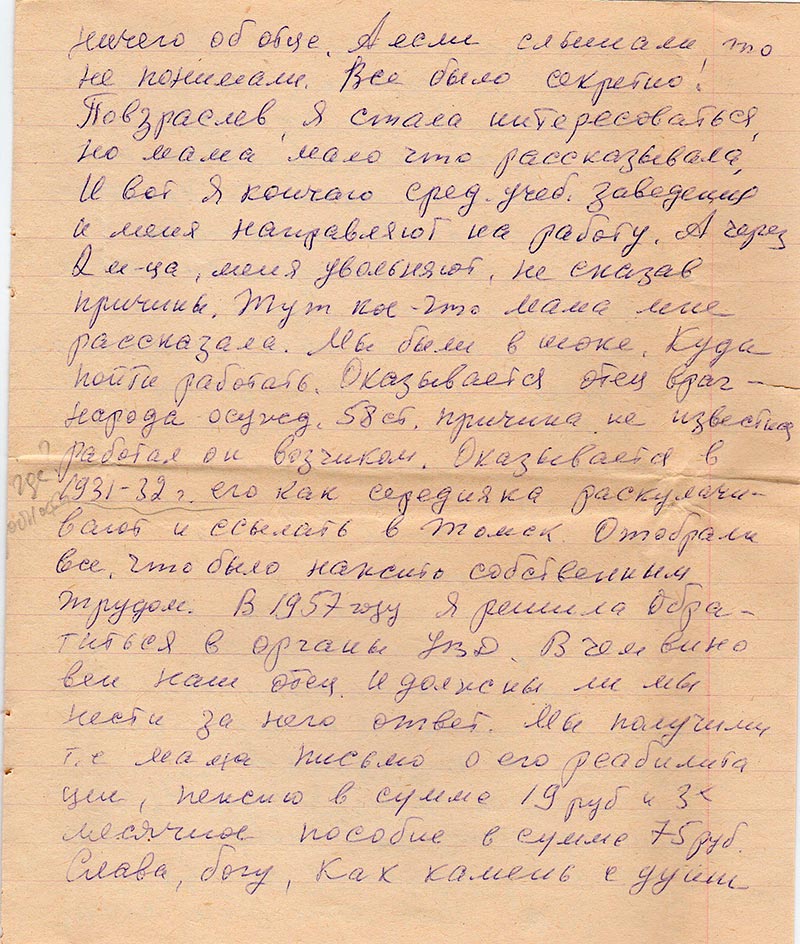 ничего об отце. А если слышали, то
не понимали. Все было секретно!
Повзраслев, я стала интересоваться,
но мама мало что рассказывала,
И вот я кончаю сред. учеб. заведение
и меня направляют на работу. А через
2 м-ца, меня увольняют, не сказав
причины. Тут кое-что мама мне
рассказала. Мы были в шоке. Куда
пойти работать. Оказывается отец враг-
народа осужд. 58 ст. причина не известна
работал он возчиком. Оказывается в
где?
1931-32 г. его как середняка раскулачи-
вают и ссылать в Томск. Отобрали
все, что было нажито собственным
трудом. В 1957 году я решила обра-
титься в органы УВД. В чем вино
вен наш отец. И должны ли мы
нести за него ответ. Мы получили
т.е мама письмо о его реабилита
ции, пенсию в сумме 19 руб и 3х
месячное пособие в сумме 75 руб.
Слава, богу, как камень с души